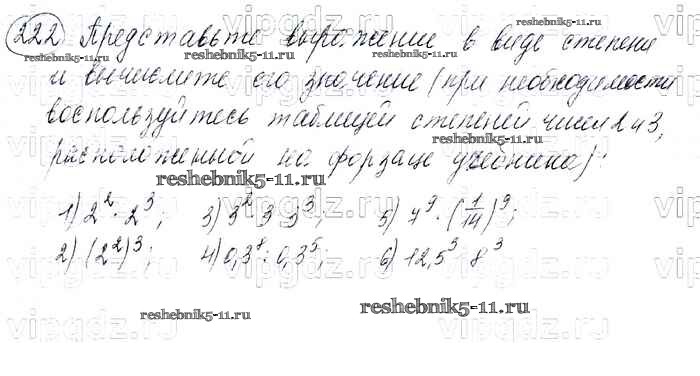 222 Представьте выражение в виде степени
и вычислите его значение (при необходимости
воспользуйтесь таблицей степеней чисел 2 и 3,
расположенной на форзаце учебника):
1) 2² · 2³; 3) 3² · 3 · 3³; 5) 7⁹ · (1/14)⁹;
2) (2²)³; 4) 0,3⁸ : 0,3⁵; 6) 12,5³ · 8³
reshebnik5-11.ru
reshebnik5-11.ru
reshebnik5-11.ru
reshebnik5-11.ru
reshebnik5-11.ru
vipgdz.ru